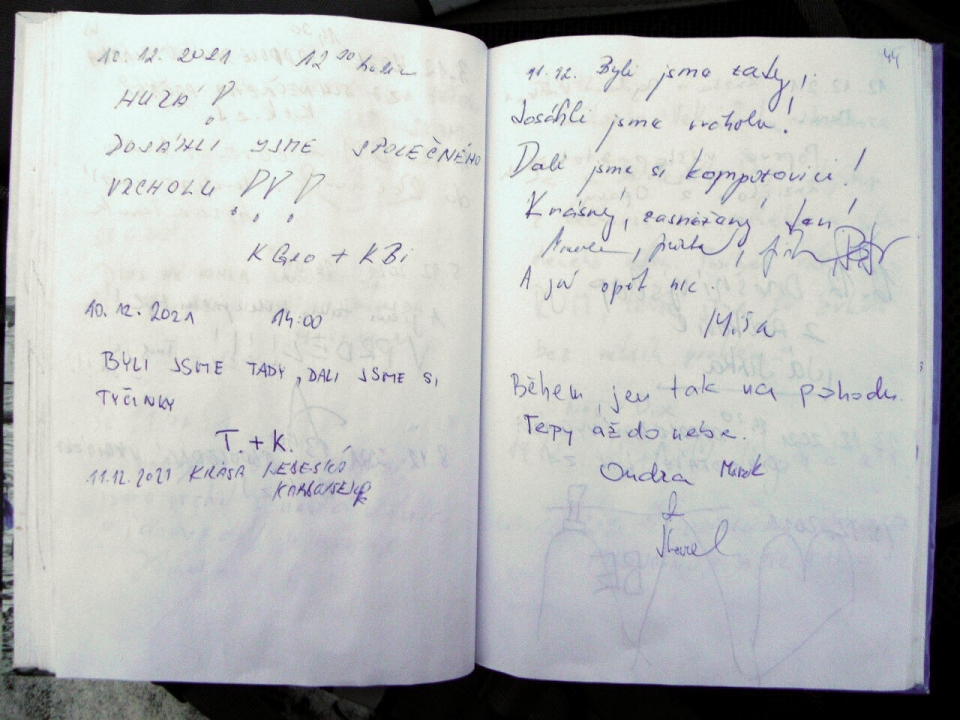 10.12.2021 12 30 hodin
HURÁ !
DOSÁHLI JSME SPOLEČNÉHO
VRCHOLU ! ! !
KGeo + KBi
10.12.2021 14:00
BYLI JSME TADY, DALI JSME SI
TYČINKY
T. + K.
11.12.2021 KRÁSA NEBESKÁ
44
11.12. Byli jsme tady,
dosáhli jsme vrcholu!
Dali jsme si kompotovici!
Krásný, zasněžený den!
A já opět nic.
Míša
Během, jen tak na pohodu.
Tepy až do nebe.
Ondra Marek
&
Karel